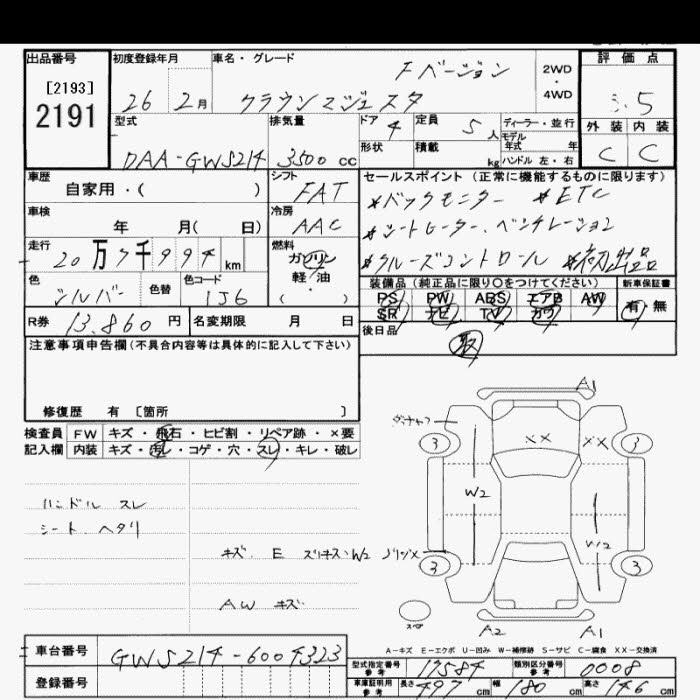 出品番号
[2193]
2191
初度登録年月
26 2月
車名・グレード
Fバージョン
クラウンマジェスタ
2WD
・
4WD
評価点
3.5
外装 内装
C C
型式
DAA-GWS214
排気量
3500 cc
ドア
4
定員
5人
形状
積載
kg
ディーラー・並行
モデル
年式 年
ハンドル 左・右
車歴
自家用・( )
シフト
FAT
車検
年 月( 日)
冷房
AAC
走行
20万7千994km
燃料
ガソリン
軽・油
( ・ )
色
シルバー
色替
色コード
1J6
R券
13.860円
名変期限 月 日
セールスポイント(正常に機能するものに限ります)
*バックモニター *ETC
*シートヒーター、ベンチレーション
*クルーズコントロール *初出品
装備品(純正品に限り○をつけてください)
PS PW ABS エアB AW
SR ナビ TV カワ
新車保証書
有・無
後日品
取
注意事項申告欄(不具合内容等は具体的に記入して下さい)
修復歴 有 [箇所 ]
検査員
記入欄
FW キズ・飛石・ヒビ割・リペア跡・×要
内装 キズ・汚レ・コゲ・穴・スレ・キレ・破レ
ハンドル スレ
シート ヘタリ
キズ. E スリキズ W2
AW キズ
A1
XX
XX
3
3
W2
W2
3
3
スペア
A2
A1
A-キズ E-エクボ U-凹み W-補修跡 S-サビ C-腐食 XX-交換済
車台番号
GWS214-6004323
登録番号
型式指定番号
参考
17584
類別区分番号
参考
0008
車庫証明用
参考
長さ 497cm
幅 180cm
高さ 146cm